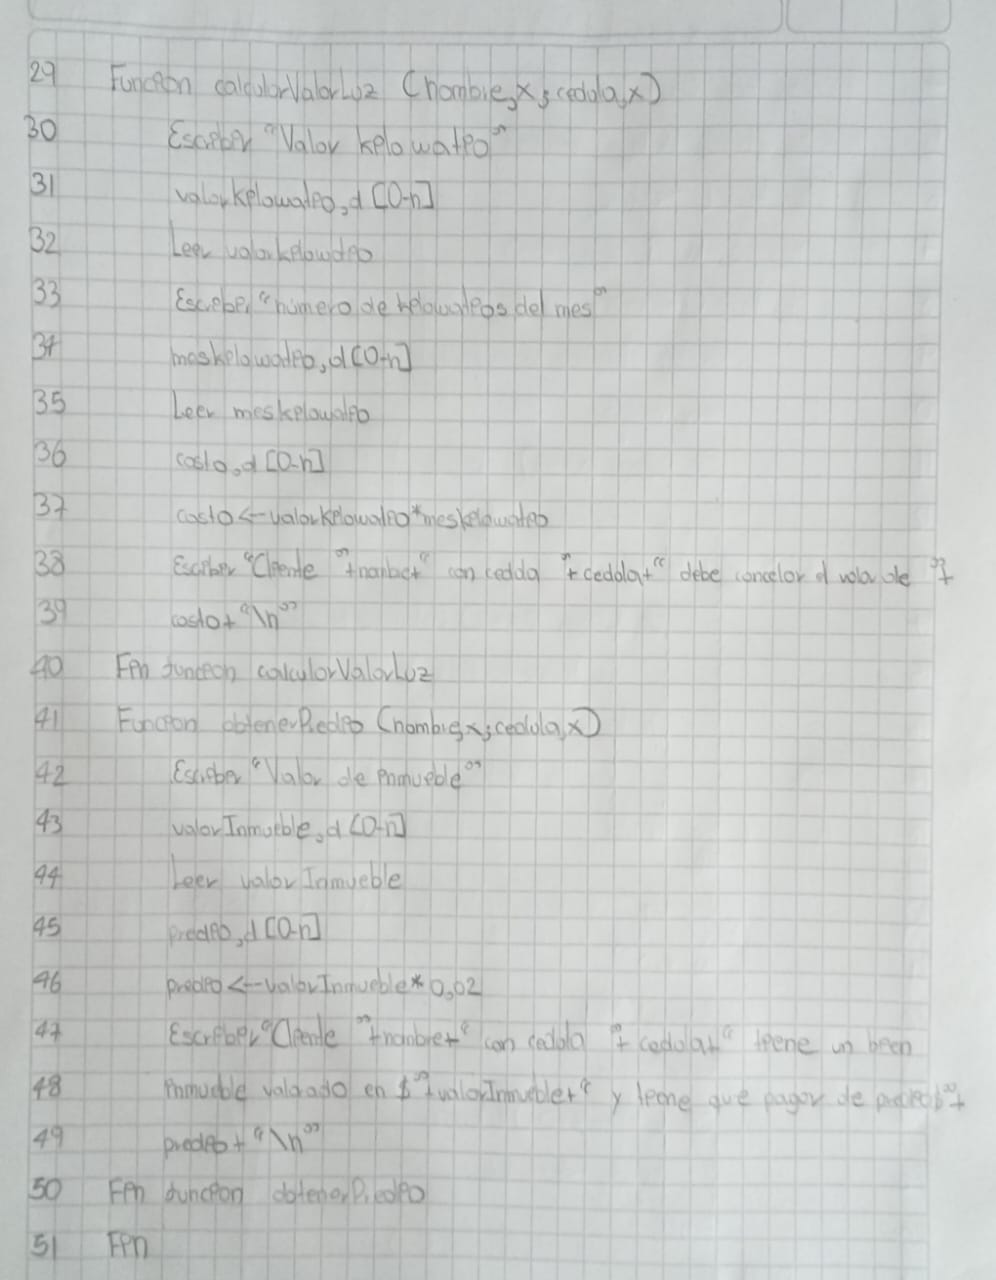 29 Función calcularValorLuz (nombre,x;cedula,x)
30 Escribir "Valor kilowatio"
31 valorkilowatio,d [0-n]
32 Leer valorkilowatio
33 Escribir "número de kilowatios del mes"
34 meskilowatio,d[0-n]
35 Leer meskilowatio
36 costo,d [0-n]
37 costo<-valorkilowatio*meskilowatio
38 Escribir "Cliente "+nombre+" con cedula "+cedula+" debe cancelar el valor de "+
39 costo+"\n"
40 Fin función calcularValorLuz
41 Función obtenerPredio (nombre,x;cedula,x)
42 Escribir "Valor de inmueble"
43 valorInmueble,d [0-n]
44 Leer valorInmueble
45 predio,d [0-n]
46 predio<-valorInmueble*0,02
47 Escribir "Cliente "+nombre+" con cedula "+cedula+" tiene un bien
48 inmueble valorado en $"+valorInmueble+" y tiene que pagar de predio"+
49 predio+"\n"
50 Fin función obtenerPredio
51 Fin